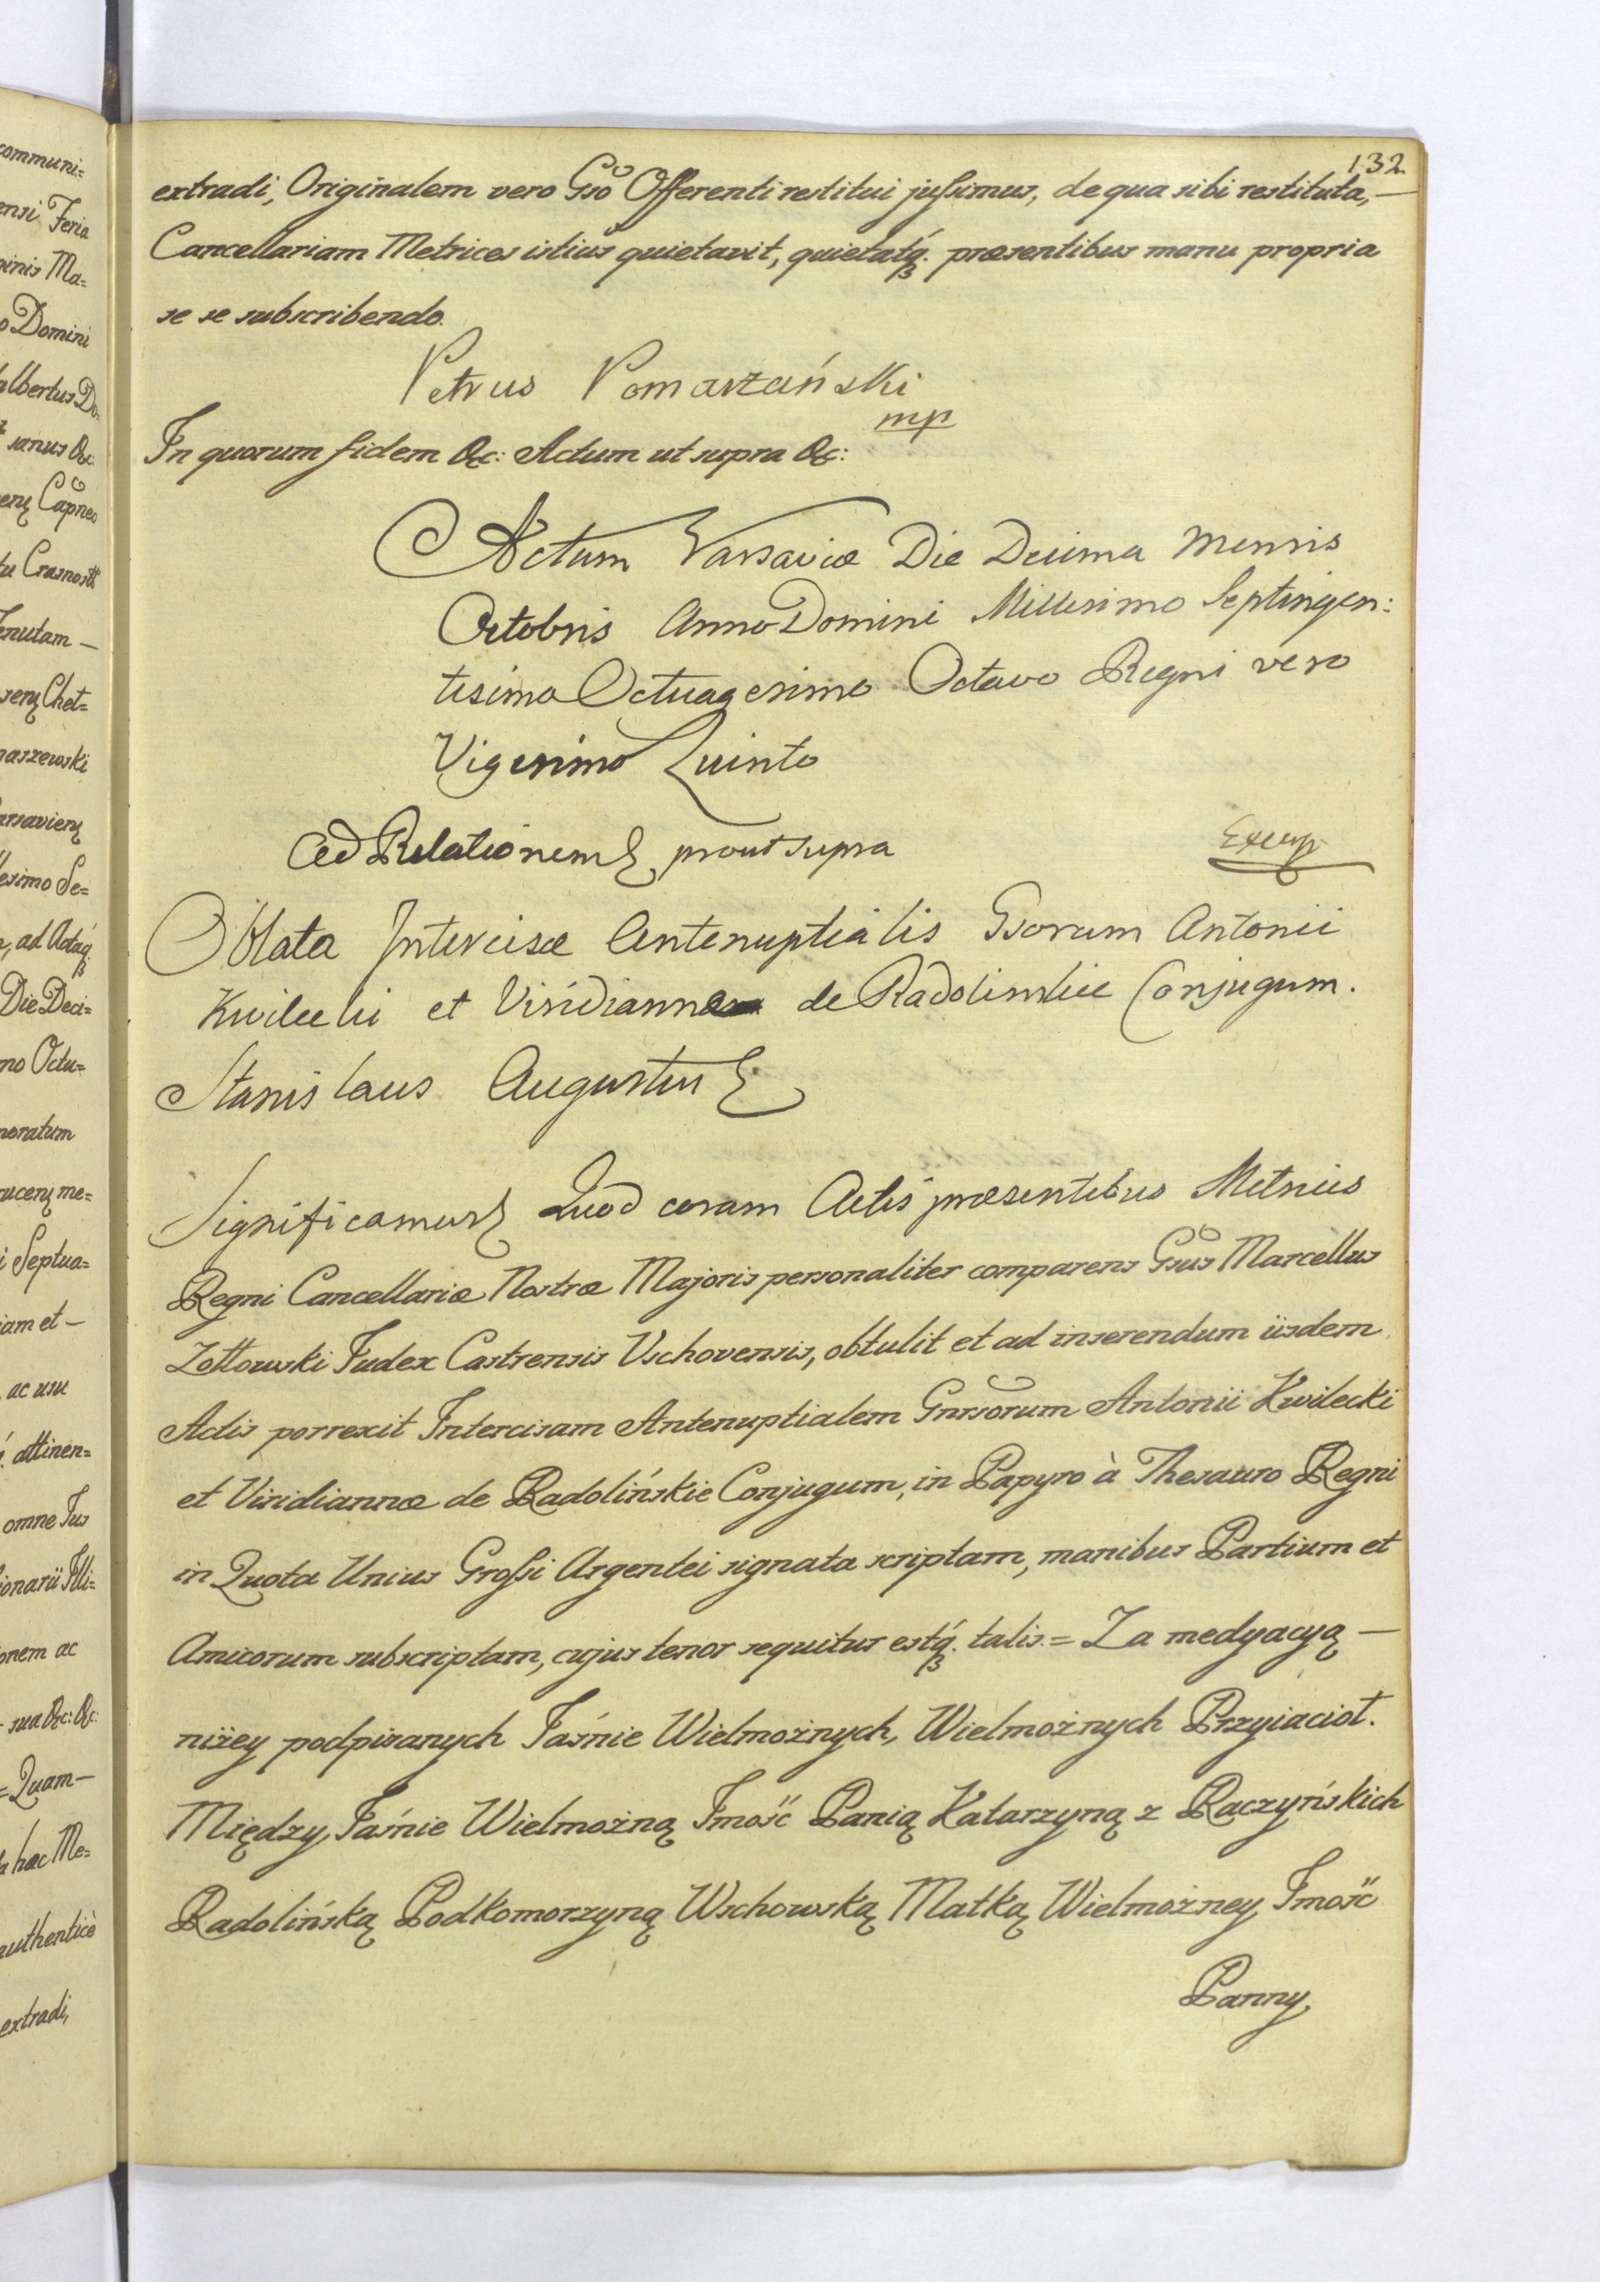 132
extradi, Originalem vero Gso Offerenti restitui jussimus, de qua sibi restituta,—
Cancellariam Metrices istius quietavit, quietatq. præsentibus manu propria
se se subscribendo.
Petrus Pomarzański
mp
In quorum fidem &c: Actum ut supra &c:
Actum Varsaviæ Die Decima Mensis
Octobris Anno Domini Millesimo Septingen:
tesimo Octuagesimo Octavo Regni vero
Vigesimo Quinto
Ad Relationem prout supra
Oblata Intercisæ Antenuptialis Gsorum Antonii
Kwilecki et Viridiannæ de Radolinskie Conjugum.
Stanislaus Augustus
Significamus Quod coram Actis præsentibus Metrices
Regni Cancellariæ Nostræ Majoris personaliter comparens Gsus Marcellus
Zołtowski Judex Castrensis Vschovensis, obtulit et ad inserendum iisdem
Actis porrexit Intercisam Antenuptialem Gnrsorum Antonii Kwilecki
et Viridiannæ de Radolińskie Conjugum, in Papyro à Thesauro Regni
in Quota Unius Grossi Argentei signata scriptam, manibus Partium et
Amicorum subscriptam, cujus tenor sequitur estq. talis.= Za medyacyą —
niżey podpisanych Jaśnie Wielmożnych, Wielmożnych Przyiacioł.
Między Jaśnie Wielmożną Jmość Panią Katarzyną z Raczyńskich
Radolińską Podkomorzyną Wschowską Matką Wielmożney Jmość
Panny,
communi=
ensi Feria
Ma=
o Domini
albertus Do=
sanus &c:
Capneo
tenutam —
Chet=
maszewski
esimo Se=
, ad Actaq.
Die Deci=
mo Octu=
moratum
me=
i Septua=
iam et —
ac usu
attinen=
omne Jus
ionarii Illi=
onem ac
sua &c: &c:
= Quam—
hæc Me=
authenticè
extradi,